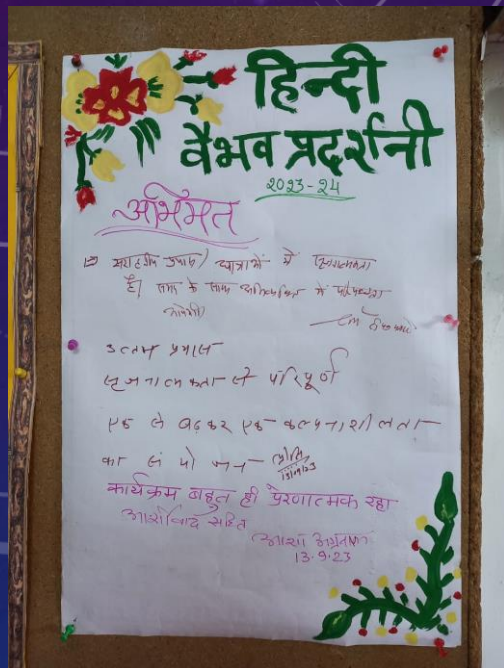 हिन्दी
वैभव प्रदर्शनी
२०२३-२४
अभिमत
सराहनीय प्रयास) छात्राओं में सृजनात्मकता
है। समय के साथ अभिव्यक्ति में परिपक्वता
आयेगी।
उत्तम प्रयास
सृजनात्मकता से परिपूर्ण
एक से बढ़कर एक कल्पनाशीलता
का संयोजन
13/9/23
कार्यक्रम बहुत ही प्रेरणात्मक रहा
आशीर्वाद सहित
आशा अग्रवाल
13.9.23